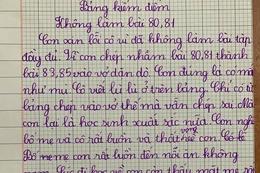 Bảng kiểm điểm
Không làm bài 80,81
Con xin lỗi cô vì đã không làm bài tập
đầy đủ. Vì con chép nhầm bài 80,81 thành
bài 83,85 vào vở dặn dò. Con đúng là có mắt
như mù. Cô viết lù lù ở trên bảng. Chỉ có từ
bảng chép vào vở thế mà vẫn chép sai. Mà
con lại là học sinh xuất sắc nữa. Con nghĩ
bố mẹ và cô rất buồn và thất vọng về con. Có lẽ
Bố mẹ con rất buồn đến nỗi ăn không
con thấy mặt mẹ